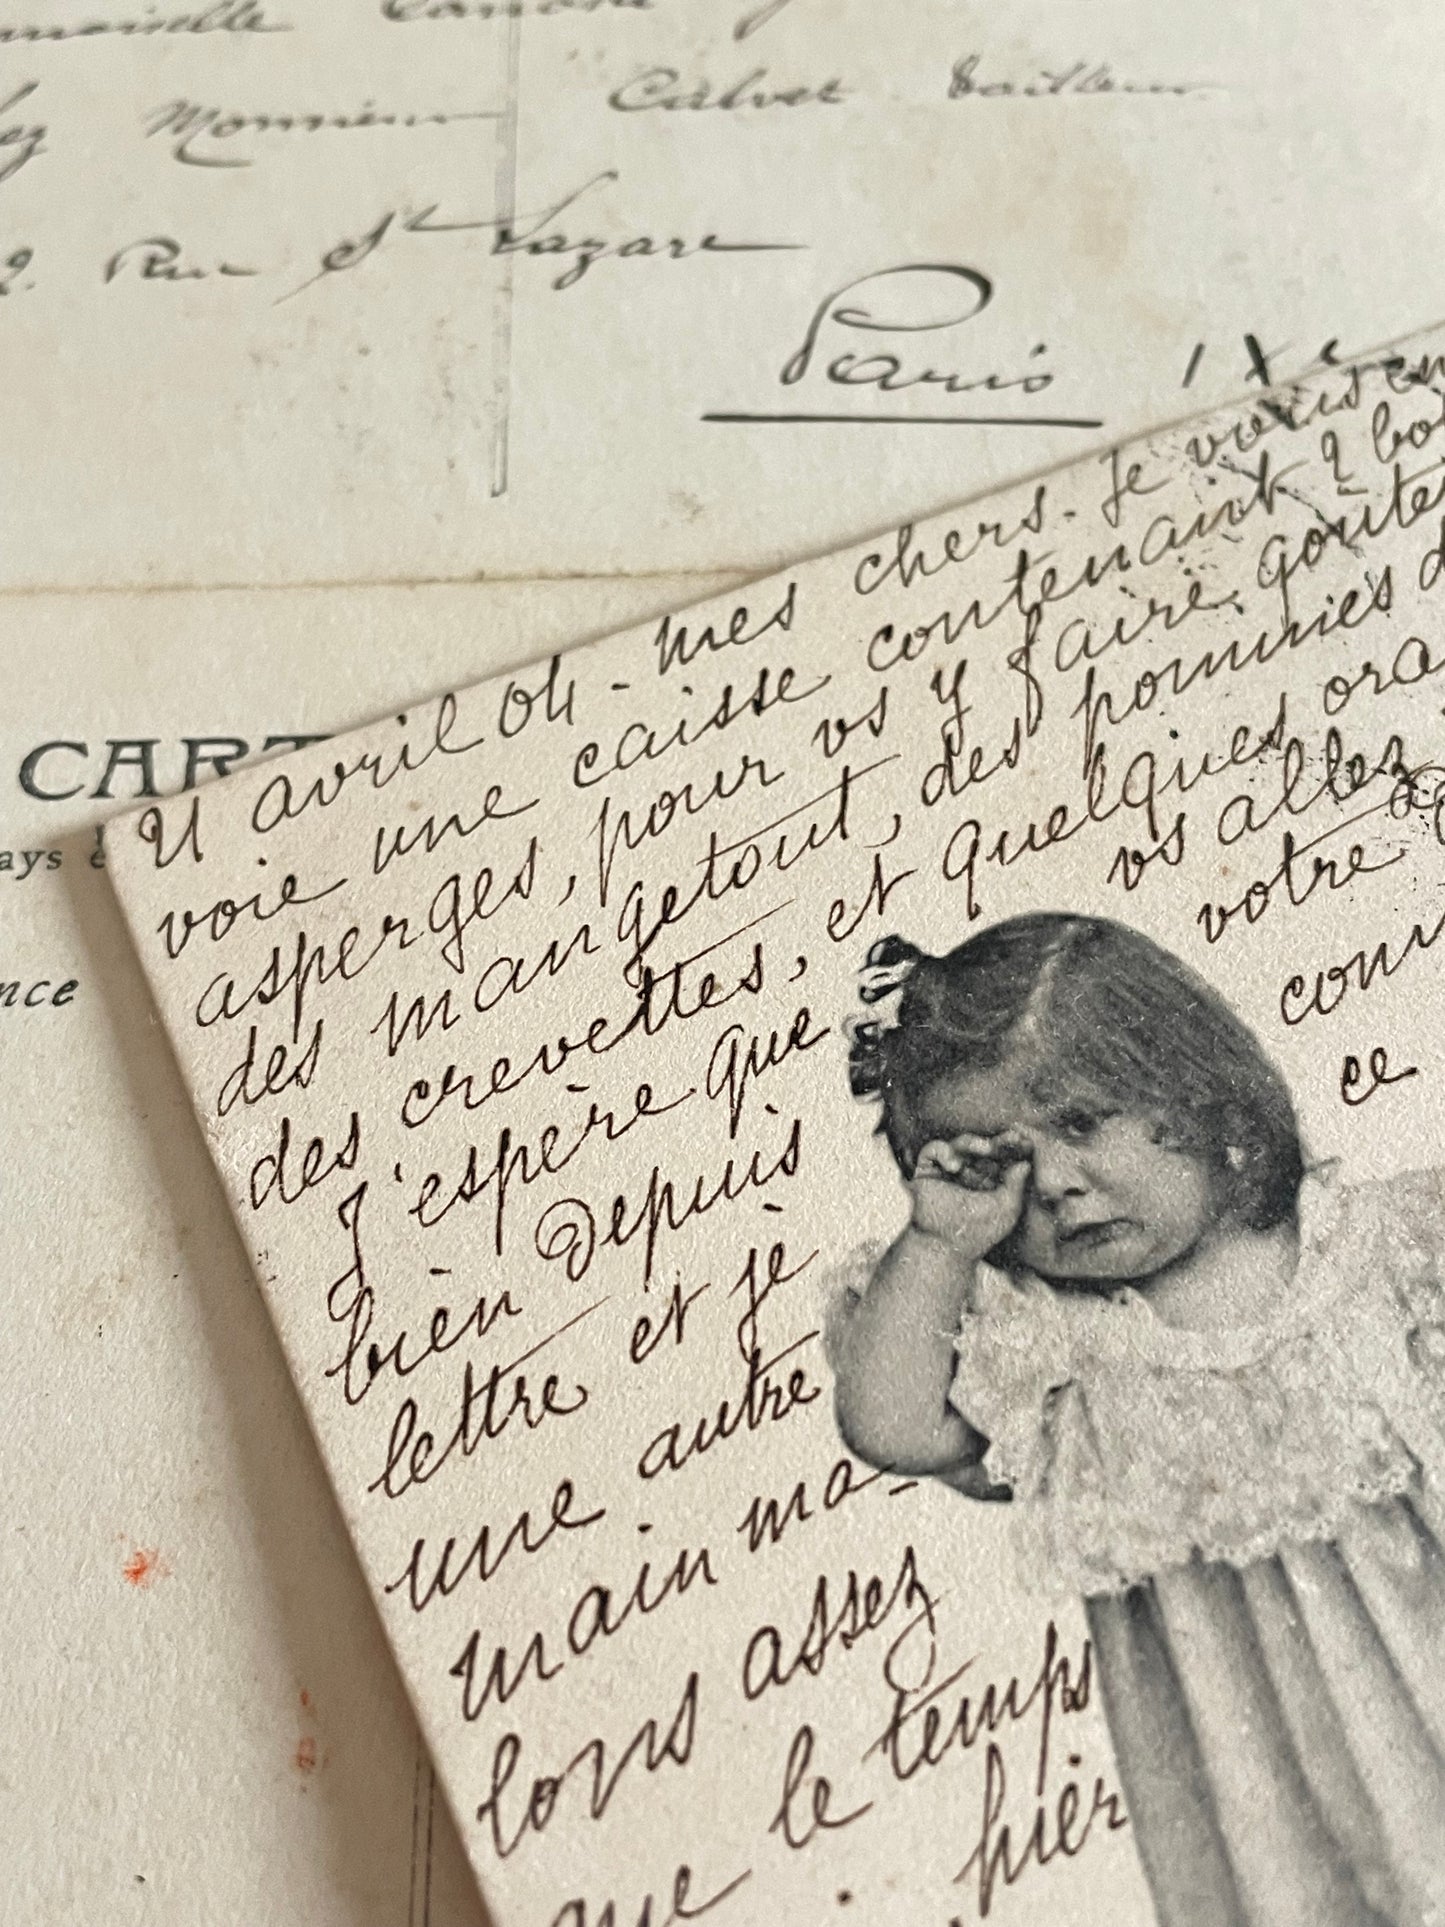 Monsieur Calvet tailleur
2. Rue St Lazare
Paris IXe
CART
ays
nce
21 avril 04 - mes chers. Je vous en
voie une caisse contenant 2 bo
asperges, pour vs y faire goûter
des mangetout, des pommes d
des crevettes, et quelques ora
J'espère que vs allez
bien Depuis votre
lettre et je
une autre
main ma-
lons assez
que le temps
hier
ce